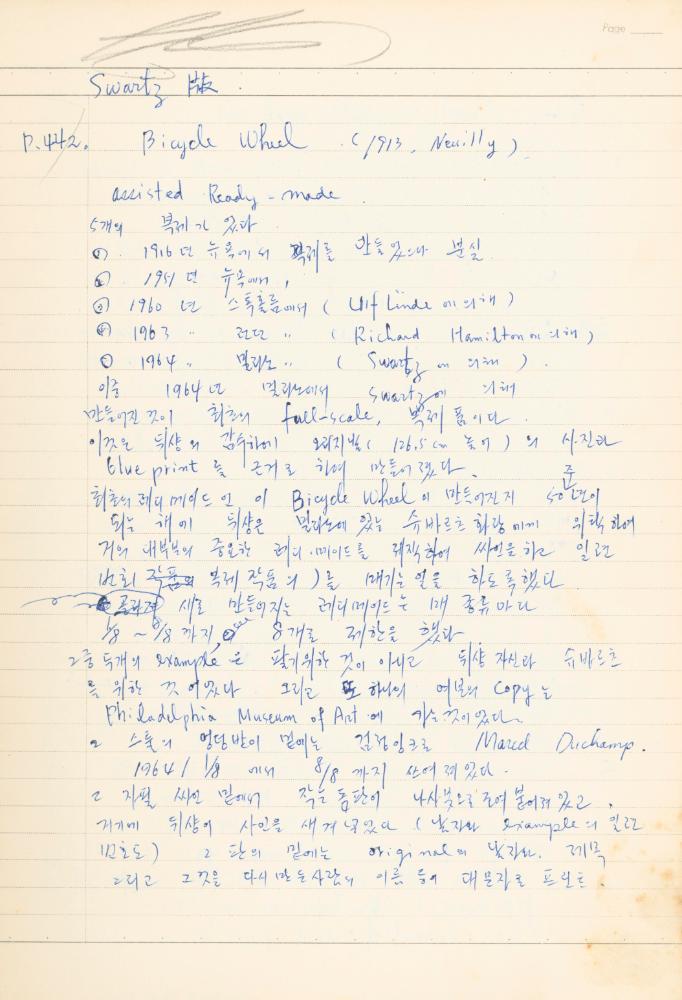 Page
Swartz 版
P.442. Bicycle Wheel (1913, Neuilly)
assisted Ready-made
5개의 복제가 있다
① 1916년 뉴욕에서 복제를 만들었으나 분실
② 1951년 뉴욕에서,
③ 1960년 스톡홀름에서 (Ulf Linde에 의해)
④ 1963 〃 런던 〃 (Richard Hamilton에 의해)
1964 〃 밀라노 〃 (Swartz에 의해).
이중 1964년 밀라노에서 Swartz에 의해
만들어진 것이 최초의 full-scale, 복제품이다.
이것은 뒤샹의 감수하에 오리지날 (126.5cm 높이)의 사진과
blue print를 근거로 하여 만들어졌다.
최초의 레디메이드인 이 Bicycle Wheel이 만들어진지 50년이
되는 해에 뒤샹은 밀라노에 있는 슈바르츠 화랑 위탁하여
거의 대부분의 중요한 레디·메이드를 제작하여 싸인을 하고 일련
번호 복제 작품의 )를 매기는 일을 하도록 했다
새로 만들어지는 레디메이드는 매 종류마다
1/8 ~ 8/8까지 8개로 제한을 했다
그중 두개의 example은 팔기위한 것이 아니고 뒤샹 자신과 슈바르츠
를 위한 것이었다 그리고 또 하나의 여분의 copy는
Philadelphia Museum of Art에 가는것이었다.
스툴의 엉덩받이 밑에는 검정잉크로 Marcel Duchamp.
1964 / 1/8 에서 8/8 까지 쓰여져 있다.
그 자필 싸인 밑에서 작은 동판이 나사못으로 붙어져 있고,
거기에 뒤샹의 사인을 새겨 넣었다 (날짜와 example의 일련
번호도) 그 판의 밑에는 original의 날짜와. 제목
그리고 그것을 다시 만든 사람의 이름 등이 대문자로 프린트.